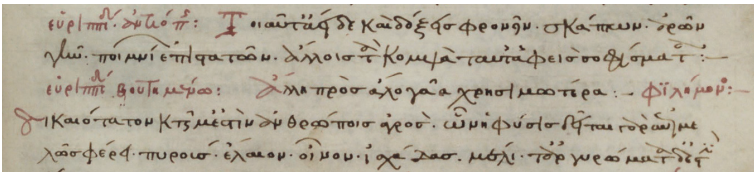 εὐριππίδ. ἀντιόπ: Τοιαῦτ᾽ ἄειδε καὶ δόξεις φρονεῖν. σκάπτων. ἀρῶν
γῆν. ποιμνίοις ἐπιστατῶν. ἄλλοις τὰ κομψὰ ταῦτ᾽ ἀφεὶς σοφίσματα:
εὐριππίδ. ἄλλη πρὸς ἄλλο γαῖα χρησιμωτέρα: φιλήμονος:
δικαιότατον κτῆμ᾽ ἐστὶν ἀνθρώποις ἀγρός. ὧν ἡ φύσις δεῖται
φέρει. πυροὺς. ἔλαιον. οἶνον. ἰσχάδας. μέλι. τὰ δ᾽ ἀργυρώματ᾽